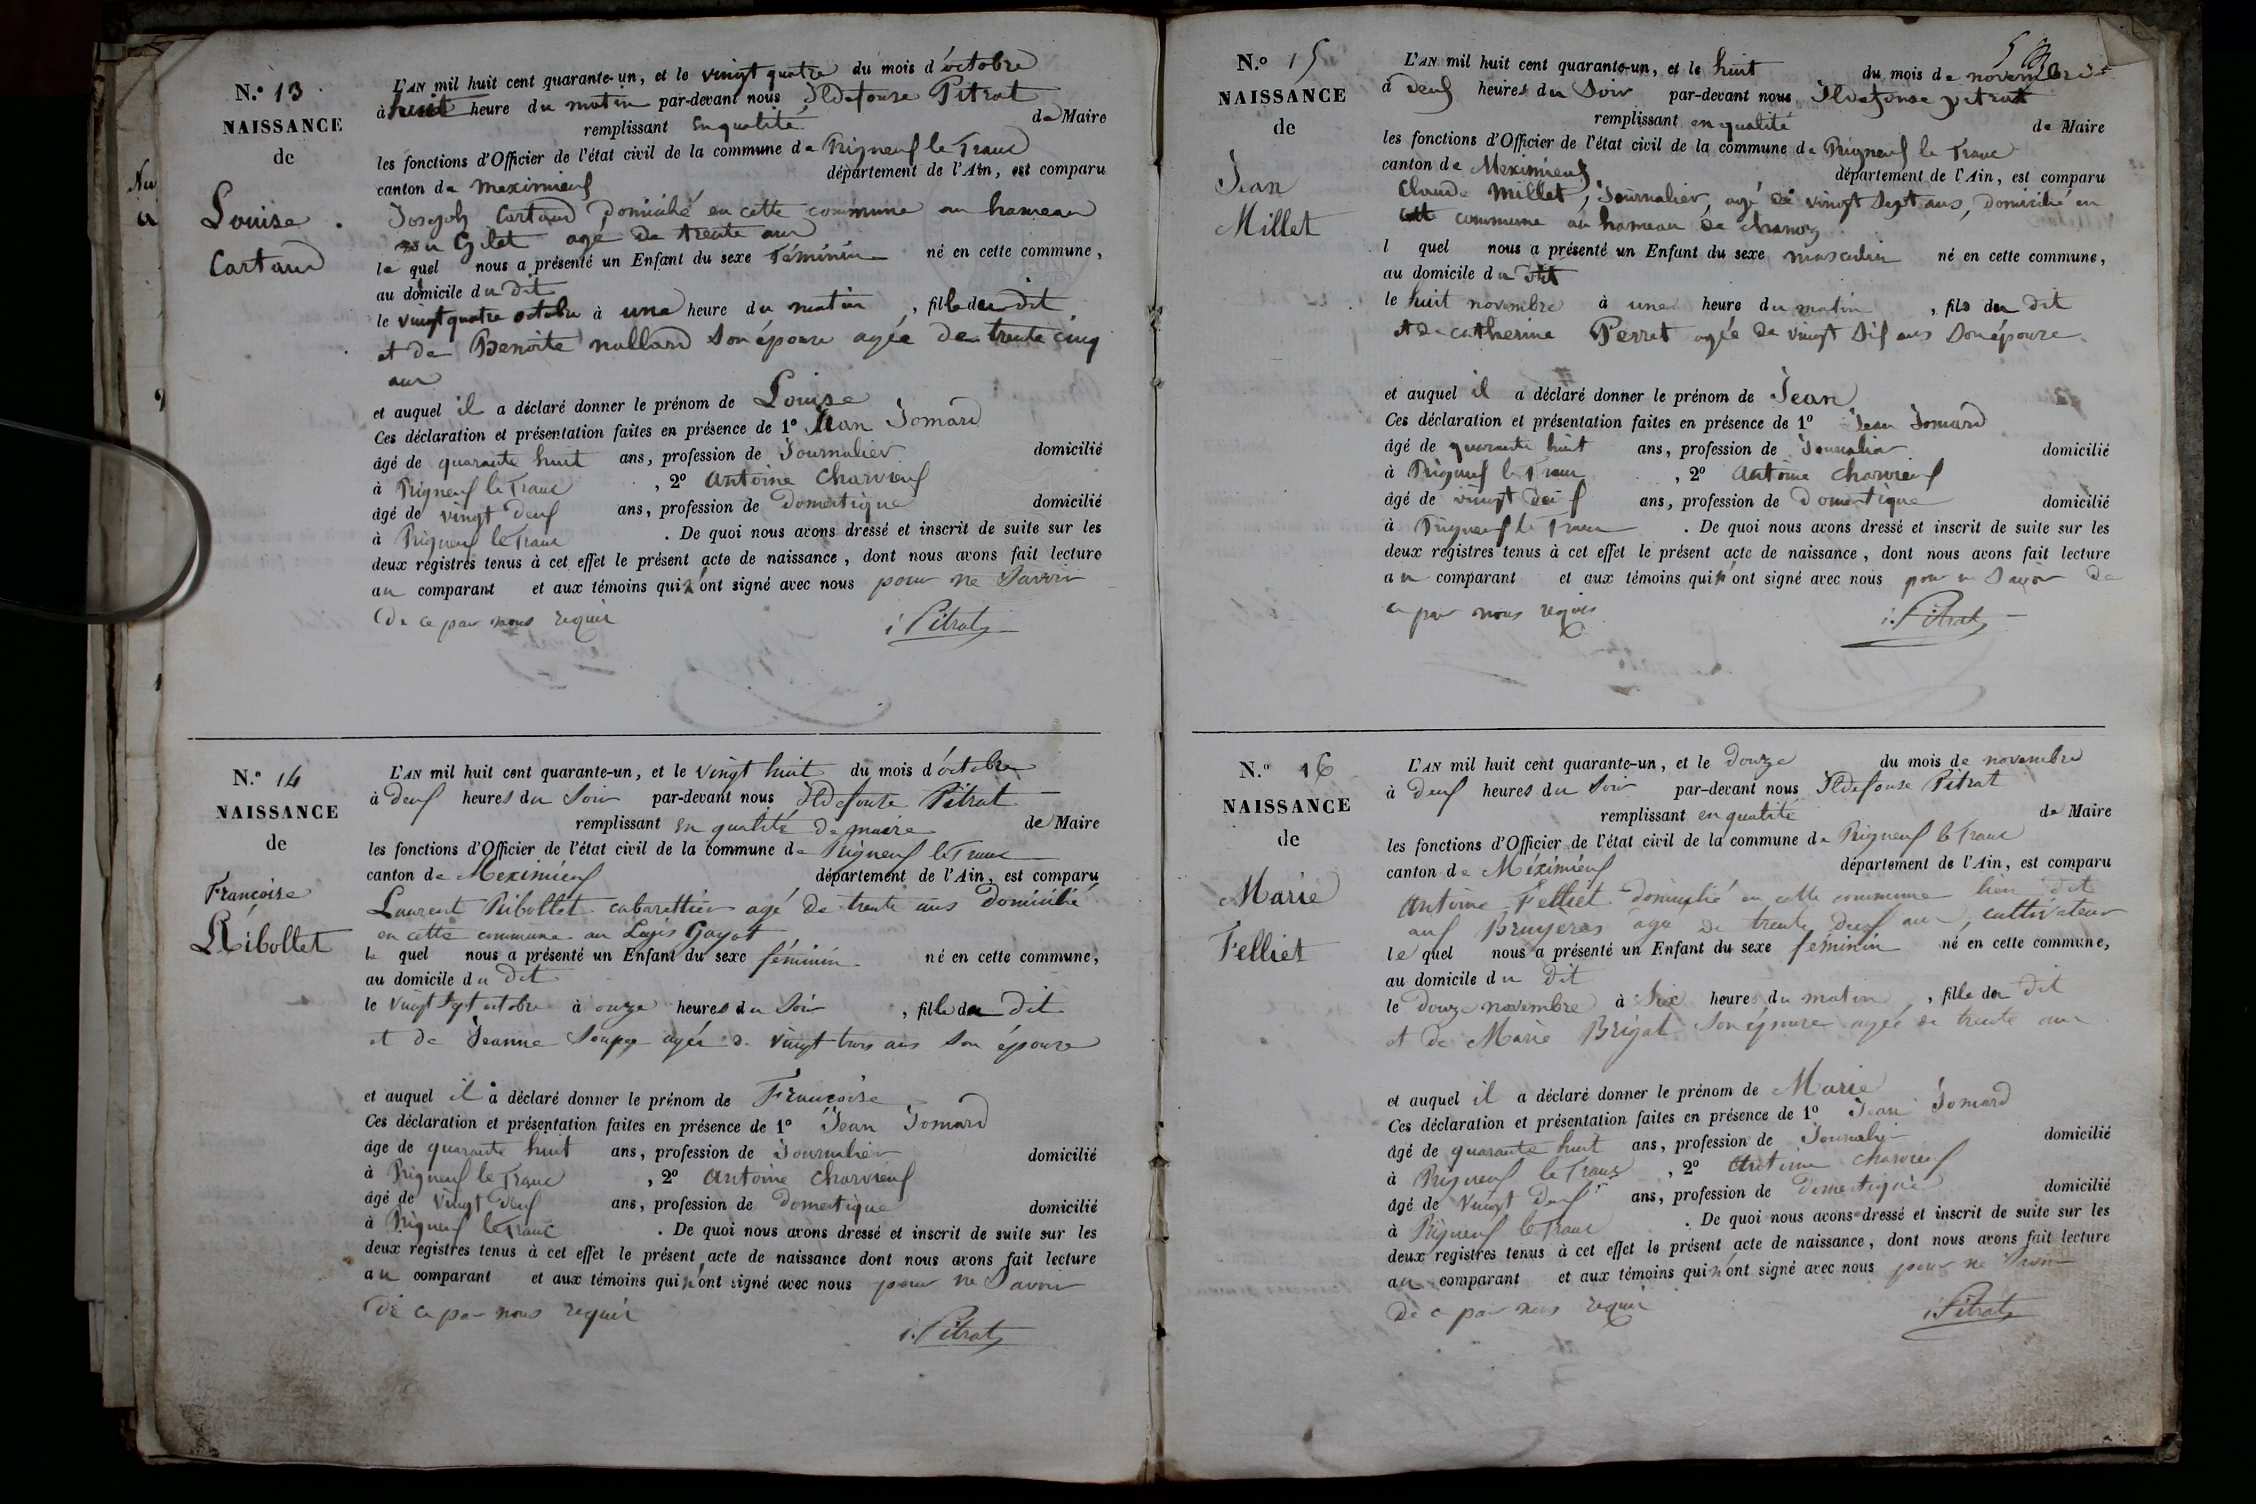 N.° 13
NAISSANCE
de
Louise
Cartaud
L'AN mil huit cent quarante-un, et le vingt quatre du mois d'octobre
à huit heure du matin par-devant nous Ildefonse Pitrat
remplissant en qualité de Maire
les fonctions d'Officier de l'état civil de la commune de Rigneux le Franc
canton de meximieux département de l'Ain, est comparu
Joseph Cartaud domicilié en cette commune au hameau
du Gilet agé de trente ans
le quel nous a présenté un Enfant du sexe féminin né en cette commune,
au domicile du dit
le vingt quatre octobre à une heure du matin, fille du dit
et de Benoite nallard son épouse agée de trente cinq
ans
et auquel il a déclaré donner le prénom de Louise
Ces déclaration et présentation faites en présence de 1° Jean Jomard
âgé de quarante huit ans, profession de Journalier domicilié
à Rigneux le Franc, 2° antoine charvieux
âgé de vingt deux ans, profession de domestique domicilié
à Rigneux le Franc. De quoi nous avons dressé et inscrit de suite sur les
deux registres tenus à cet effet le présent acte de naissance, dont nous avons fait lecture
au comparant et aux témoins qui n'ont signé avec nous pour ne savoir
de ce par nous requis
i. Pitrat
N.° 14
NAISSANCE
de
Françoise
Ribollet
L'AN mil huit cent quarante-un, et le vingt huit du mois d'octobre
à deux heures du soir par-devant nous Ildefonse Pitrat
remplissant en qualité de maire de Maire
les fonctions d'Officier de l'état civil de la commune de Rigneux le Franc
canton de Meximieux département de l'Ain, est comparu
Laurent Ribollet cabarettier agé de trente ans domicilié
en cette commune au Logis Gayot
le quel nous a présenté un Enfant du sexe féminin né en cette commune,
au domicile du dit
le vingt sept octobre à onze heures du soir, fille du dit
et de Jeanne Soupe agée de vingt trois ans son épouse
et auquel il a déclaré donner le prénom de Françoise
Ces déclaration et présentation faites en présence de 1° Jean Jomard
âge de quarante huit ans, profession de Journalier domicilié
à Rigneux le Franc, 2° antoine charvieux
âgé de vingt deux ans, profession de domestique domicilié
à Rigneux le Franc. De quoi nous avons dressé et inscrit de suite sur les
deux registres tenus à cet effet le présent acte de naissance dont nous avons fait lecture
au comparant et aux témoins qui n'ont signé avec nous pour ne savoir
de ce par nous requis
i. Pitrat
N.° 15
NAISSANCE
de
Jean
Millet
L'AN mil huit cent quarante-un, et le huit du mois de novembre
à deux heures du soir par-devant nous Ildefonse pitrat
remplissant en qualité de Maire
les fonctions d'Officier de l'état civil de la commune de Rigneux le Franc
canton de Meximieux département de l'Ain, est comparu
Claude Millet, Journalier, agé de vingt sept ans, domicilié en
cette commune au hameau de
l quel nous a présenté un Enfant du sexe masculin né en cette commune,
au domicile du dit
le huit novembre à une heure du matin, fils du dit
et de catherine Perret agée de vingt six ans son épouse
et auquel il a déclaré donner le prénom de Jean
Ces déclaration et présentation faites en présence de 1° Jean Jomard
âgé de quarante huit ans, profession de Journalier domicilié
à Rigneux le Franc, 2° antoine charvieux
âgé de vingt deux ans, profession de domestique domicilié
à Rigneux le Franc. De quoi nous avons dressé et inscrit de suite sur les
deux registres tenus à cet effet le présent acte de naissance, dont nous avons fait lecture
au comparant et aux témoins qui n'ont signé avec nous pour ne savoir de
ce par nous requis
i. Pitrat
N.° 16
NAISSANCE
de
Marie
Felliet
L'AN mil huit cent quarante-un, et le douze du mois de novembre
à deux heures du soir par-devant nous Ildefonse Pitrat
remplissant en qualité de Maire
les fonctions d'Officier de l'état civil de la commune de Rigneux le Franc
canton de Méximieux département de l'Ain, est comparu
antoine Felliet domicilié en cette commune lieu dit
aux Bruyeres agé de trente deux ans, cultivateur
le quel nous a présenté un Enfant du sexe féminin né en cette commune,
au domicile du dit
le douze novembre à six heures du matin, fille du dit
et de Marie Brigat son épouse agée de trente ans
et auquel il a déclaré donner le prénom de Marie
Ces déclaration et présentation faites en présence de 1° Jean Jomard
âgé de quarante huit ans, profession de Journalier domicilié
à Rigneux le Franc, 2° antoine charvieux
âgé de vingt deux ans, profession de domestique domicilié
à Rigneux le Franc. De quoi nous avons dressé et inscrit de suite sur les
deux registres tenus à cet effet le présent acte de naissance, dont nous avons fait lecture
au comparant et aux témoins qui n'ont signé avec nous pour ne savoir
de ce par nous requis
i. Pitrat